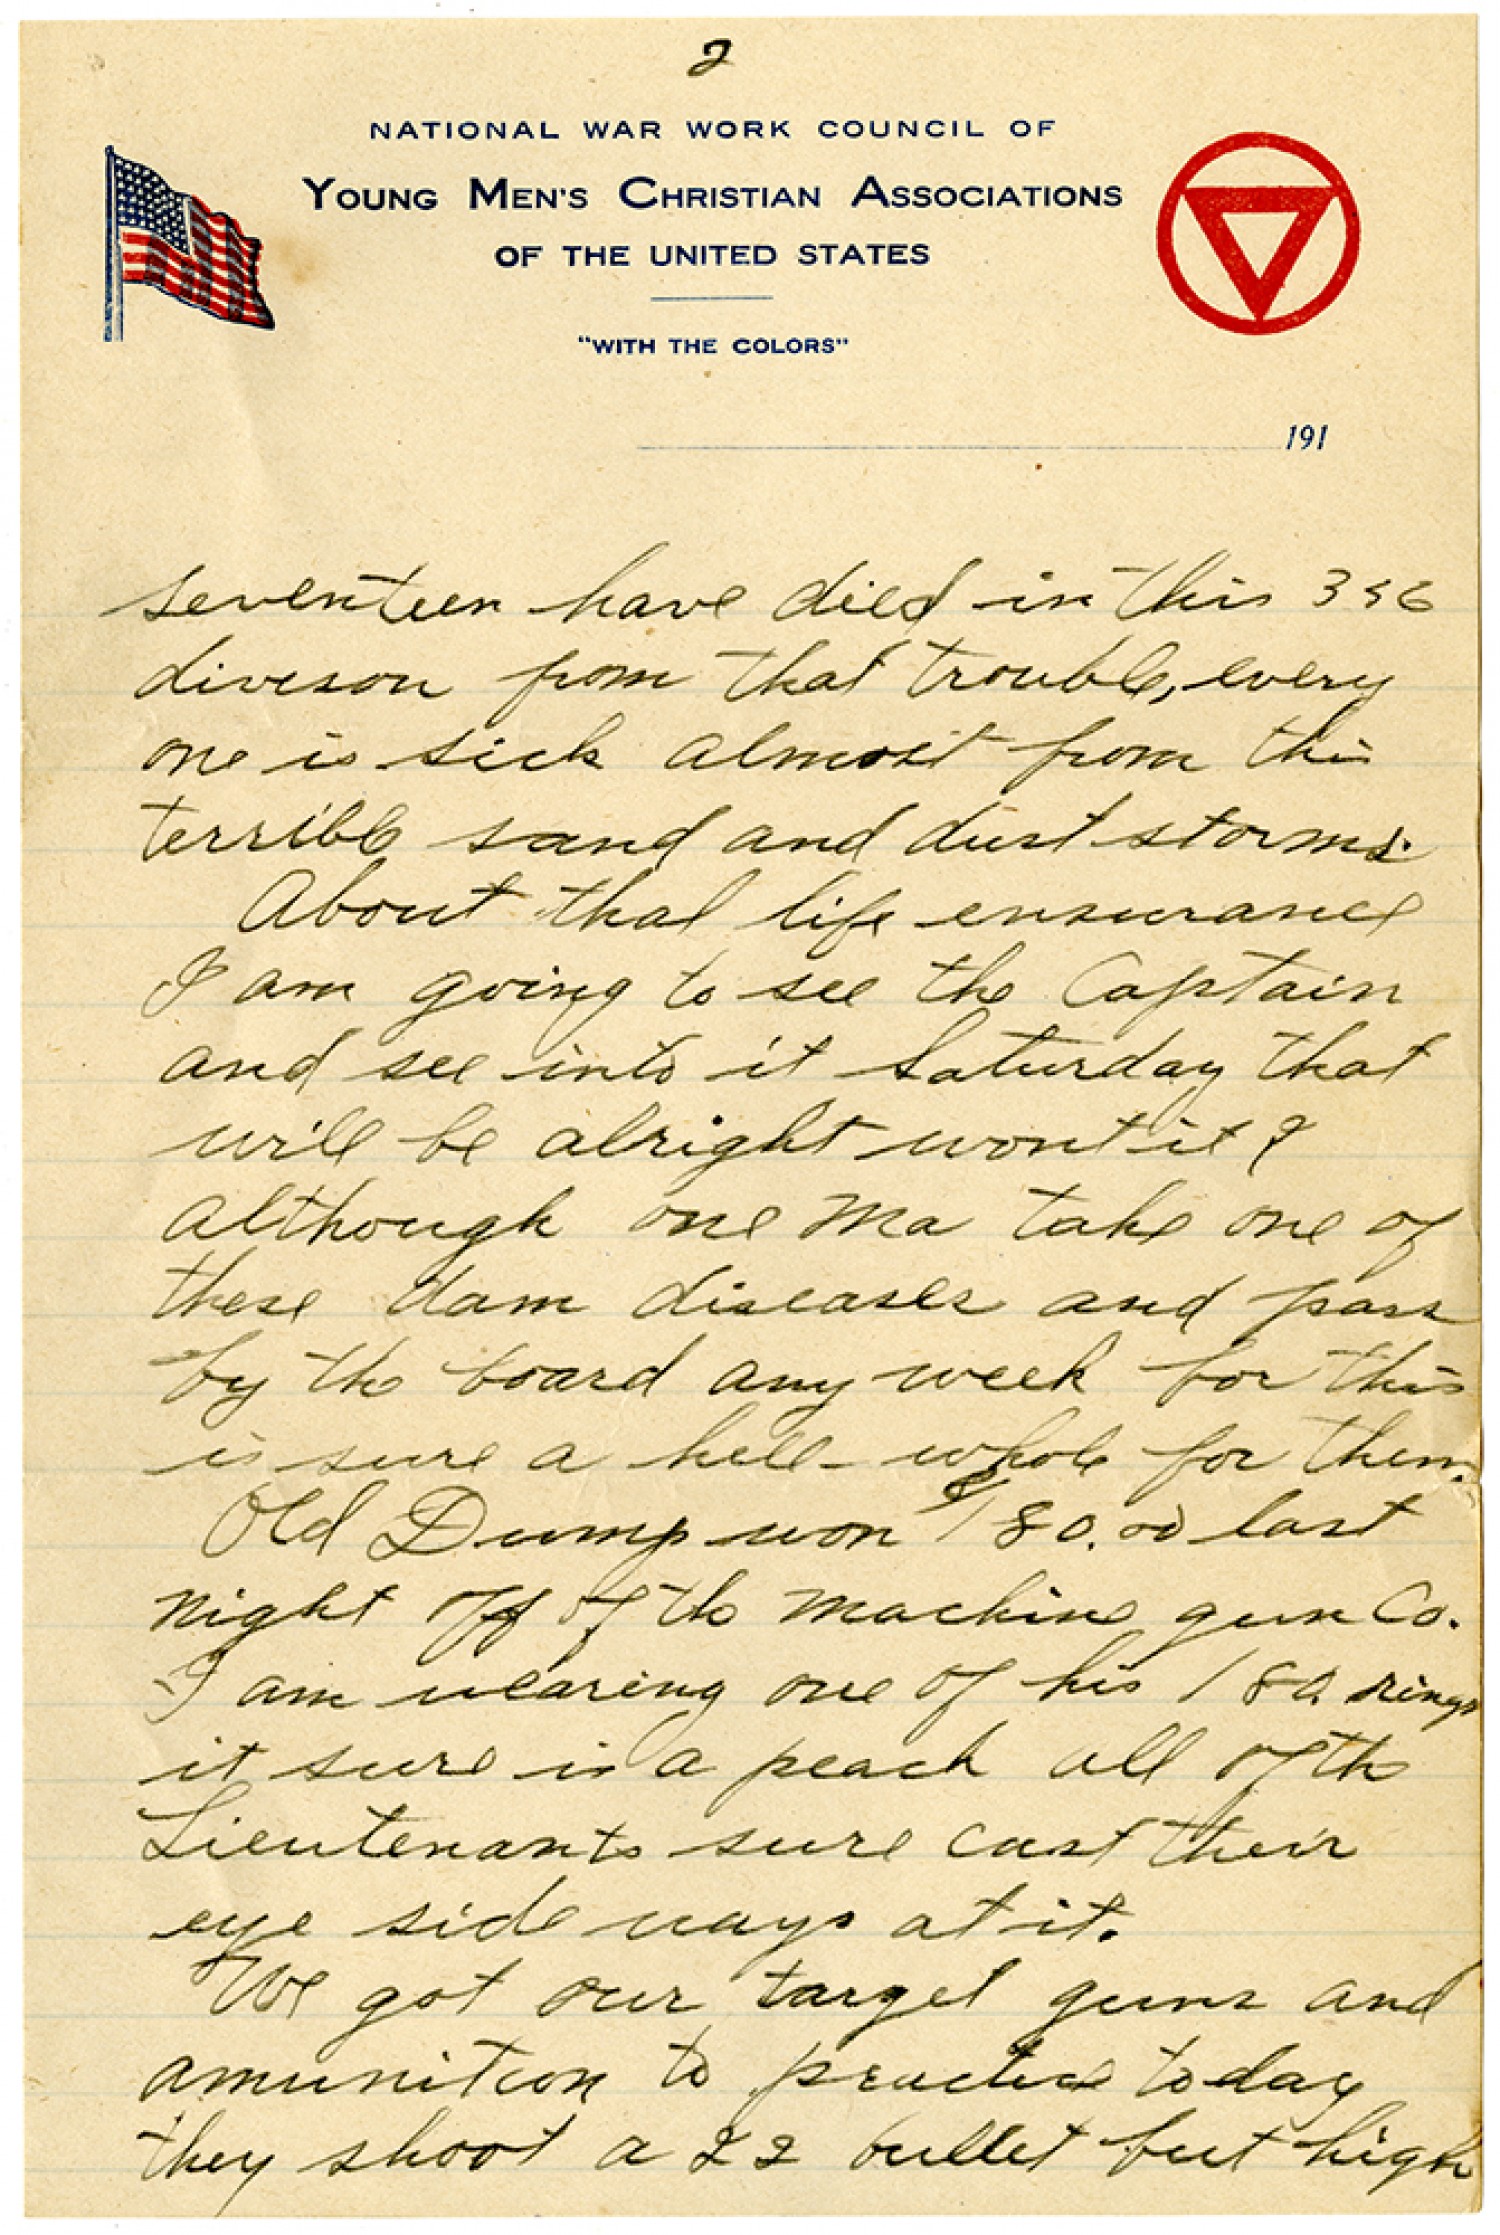 2
NATIONAL WAR WORK COUNCIL OF
YOUNG MEN'S CHRISTIAN ASSOCIATIONS
OF THE UNITED STATES
"WITH THE COLORS"
191
seventeen have died in this 356
diveson from that trouble, every
one is sick almost from this
terrible sand and dust storms.
About that life ensurance
I am going to see the Captain
and see into it Saturday that
will be alright wont it?
Although one Ma take one of
these dam diseases and pass
by the board any week for this
is sure a hell-whole for them.
Old Dump won $180.00 last
night off of the machine gun Co.
I am wearing one of his 180 rings
it sure is a peach all of the
Lieutenants sure cast their
eye side ways at it.
We got our target guns and
amunition to practice today
they shoot a 22 bullet but high